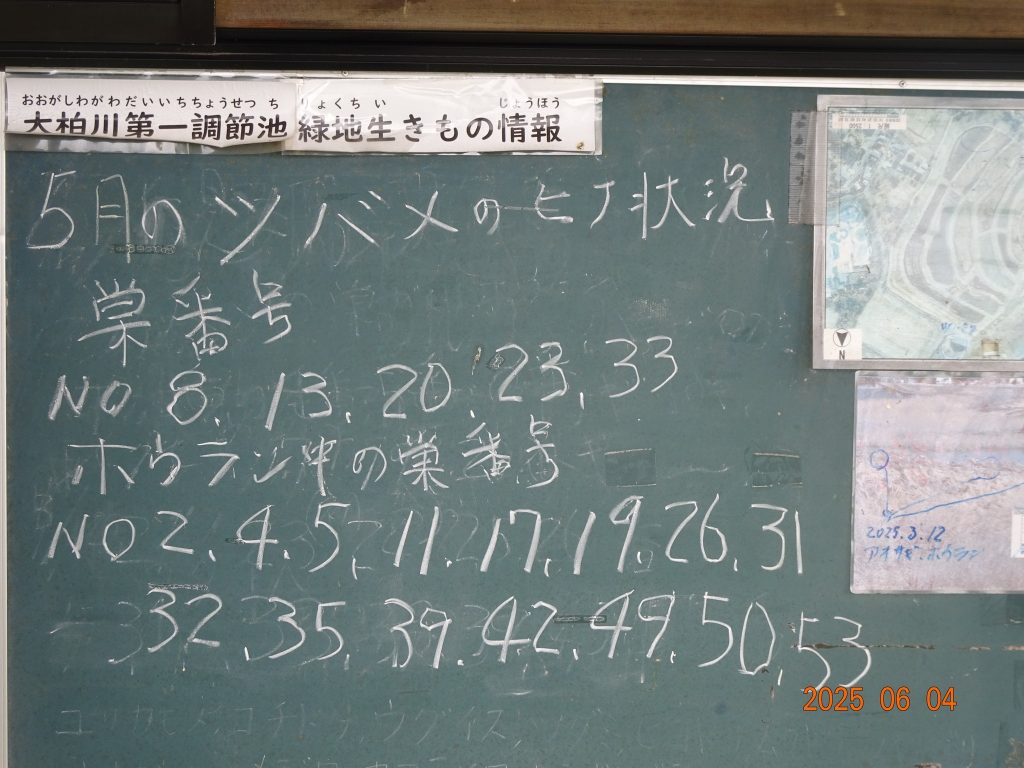 おおがしわがわだいいちちょうせつち りょくちい じょうほう
大柏川第一調節池 緑地生きもの情報
5月のツバメのヒナ状況
巣番号
NO 8. 13. 20. 23. 33
ホウラン中の巣番号
NO 2. 4. 5. 11. 17. 19. 26. 31
32. 35. 39. 42. 49. 50. 53
N
2025.3.12
アオサギ・ホウラン
2025 06 04